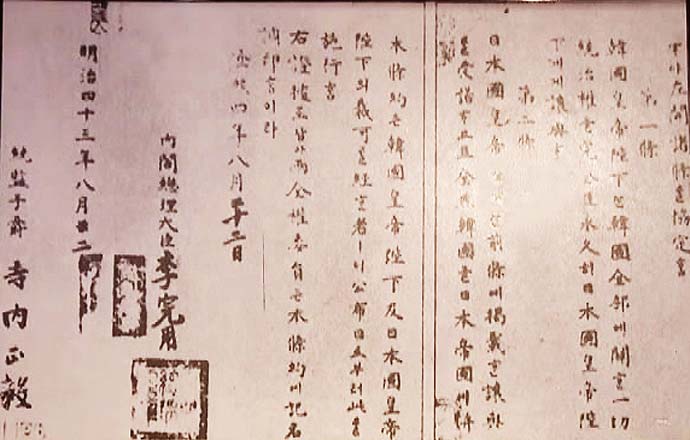 左開諸條를協定홈
第一條
韓國皇帝陛下는韓國全部에關한一切
統治權을完全且永久히日本國皇帝陛
下에게讓與홈
第二條
日本國皇帝陛下는前條에揭載한讓與
를受諾하고且全然韓國을日本帝國에併
本條約은韓國皇帝陛下及日本國皇帝
陛下의裁可를經한者ㅣ니公布日로브터此를
施行홈
右證據로삼아兩全權委員은本條約에記名
調印홈이라
隆熙四年八月二十二日
內閣總理大臣李完用
明治四十三年八月廿二
統監子爵寺內正毅